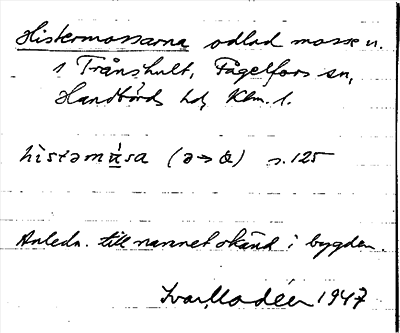 Histermossarna odlad mosse n.
i Trånshult, Fågelfors sn,
Handbörds hd, Klm. l.
histəmɷ̀sa (ə→a) s. 125
Anledn. till namnet okänd i bygden.
Ivar Modéer 1947